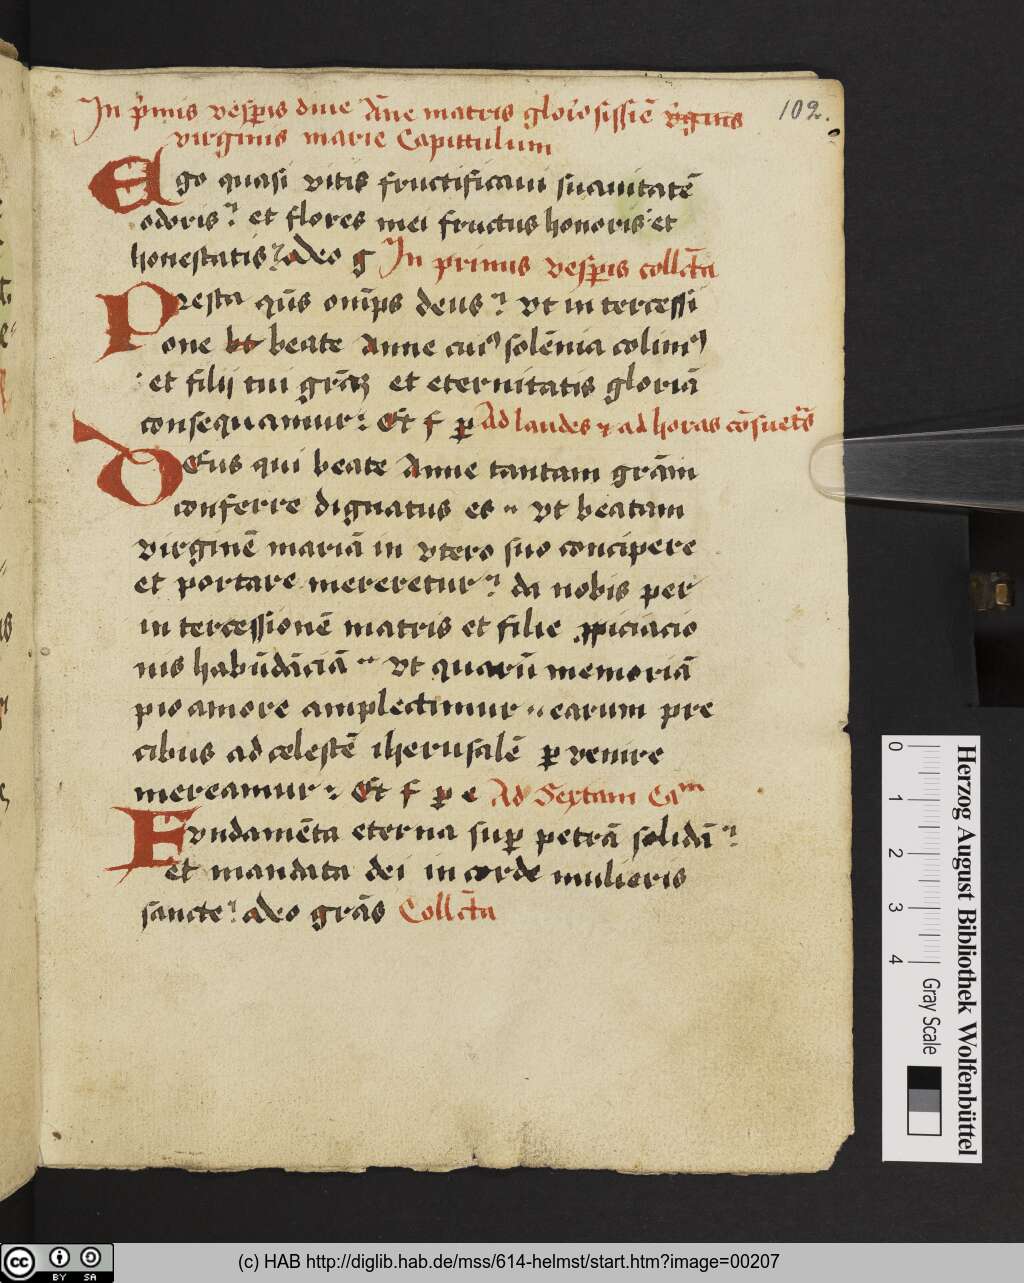 In p̄mis vesꝑis diue An̄e matris glo͞rio sissiē v̄gints 102.
virginis marie Capittulum
Ego quasi vitis fructificaui suauitatē
odoris et flores mei fructus honoris et
honestatis adeo g In primis vesꝑis coll̄cta
Presta qū̄s om̄ips deus vt in tercessi
one bt beate Anne cuiꝰ solēnia colimꝰ
et filij tui grāꝝ et eternitatis gloriā
consequamur : Et f ꝑ Ad laudes ⁊ ad horas cōsuet̄s
DEus qui beate Anne tantam grām
conferre dignatus es vt beatam
virginē mariā in vtero suo concipere
et portare mereretur da nobis per
in tercessionē matris et filie ꝓpiciacio
nis habūdāciā vt quarū memoriā
pio amore amplectimur earum pre
cibus ad celestē iherusalē ꝑ venire
mereamur : Et f ꝑ e Ad Sextam Caᵐ
Fvndamēta eterna suꝑ petrā solidā
et mandata dei in corde mulieris
sancte adeo grās Coll̄cta
Herzog August Bibliothek Wolfenbüttel
0 1 2 3 4 Gray Scale
cc BY SA
(c) HAB http://diglib.hab.de/mss/614-helmst/start.htm?image=00207